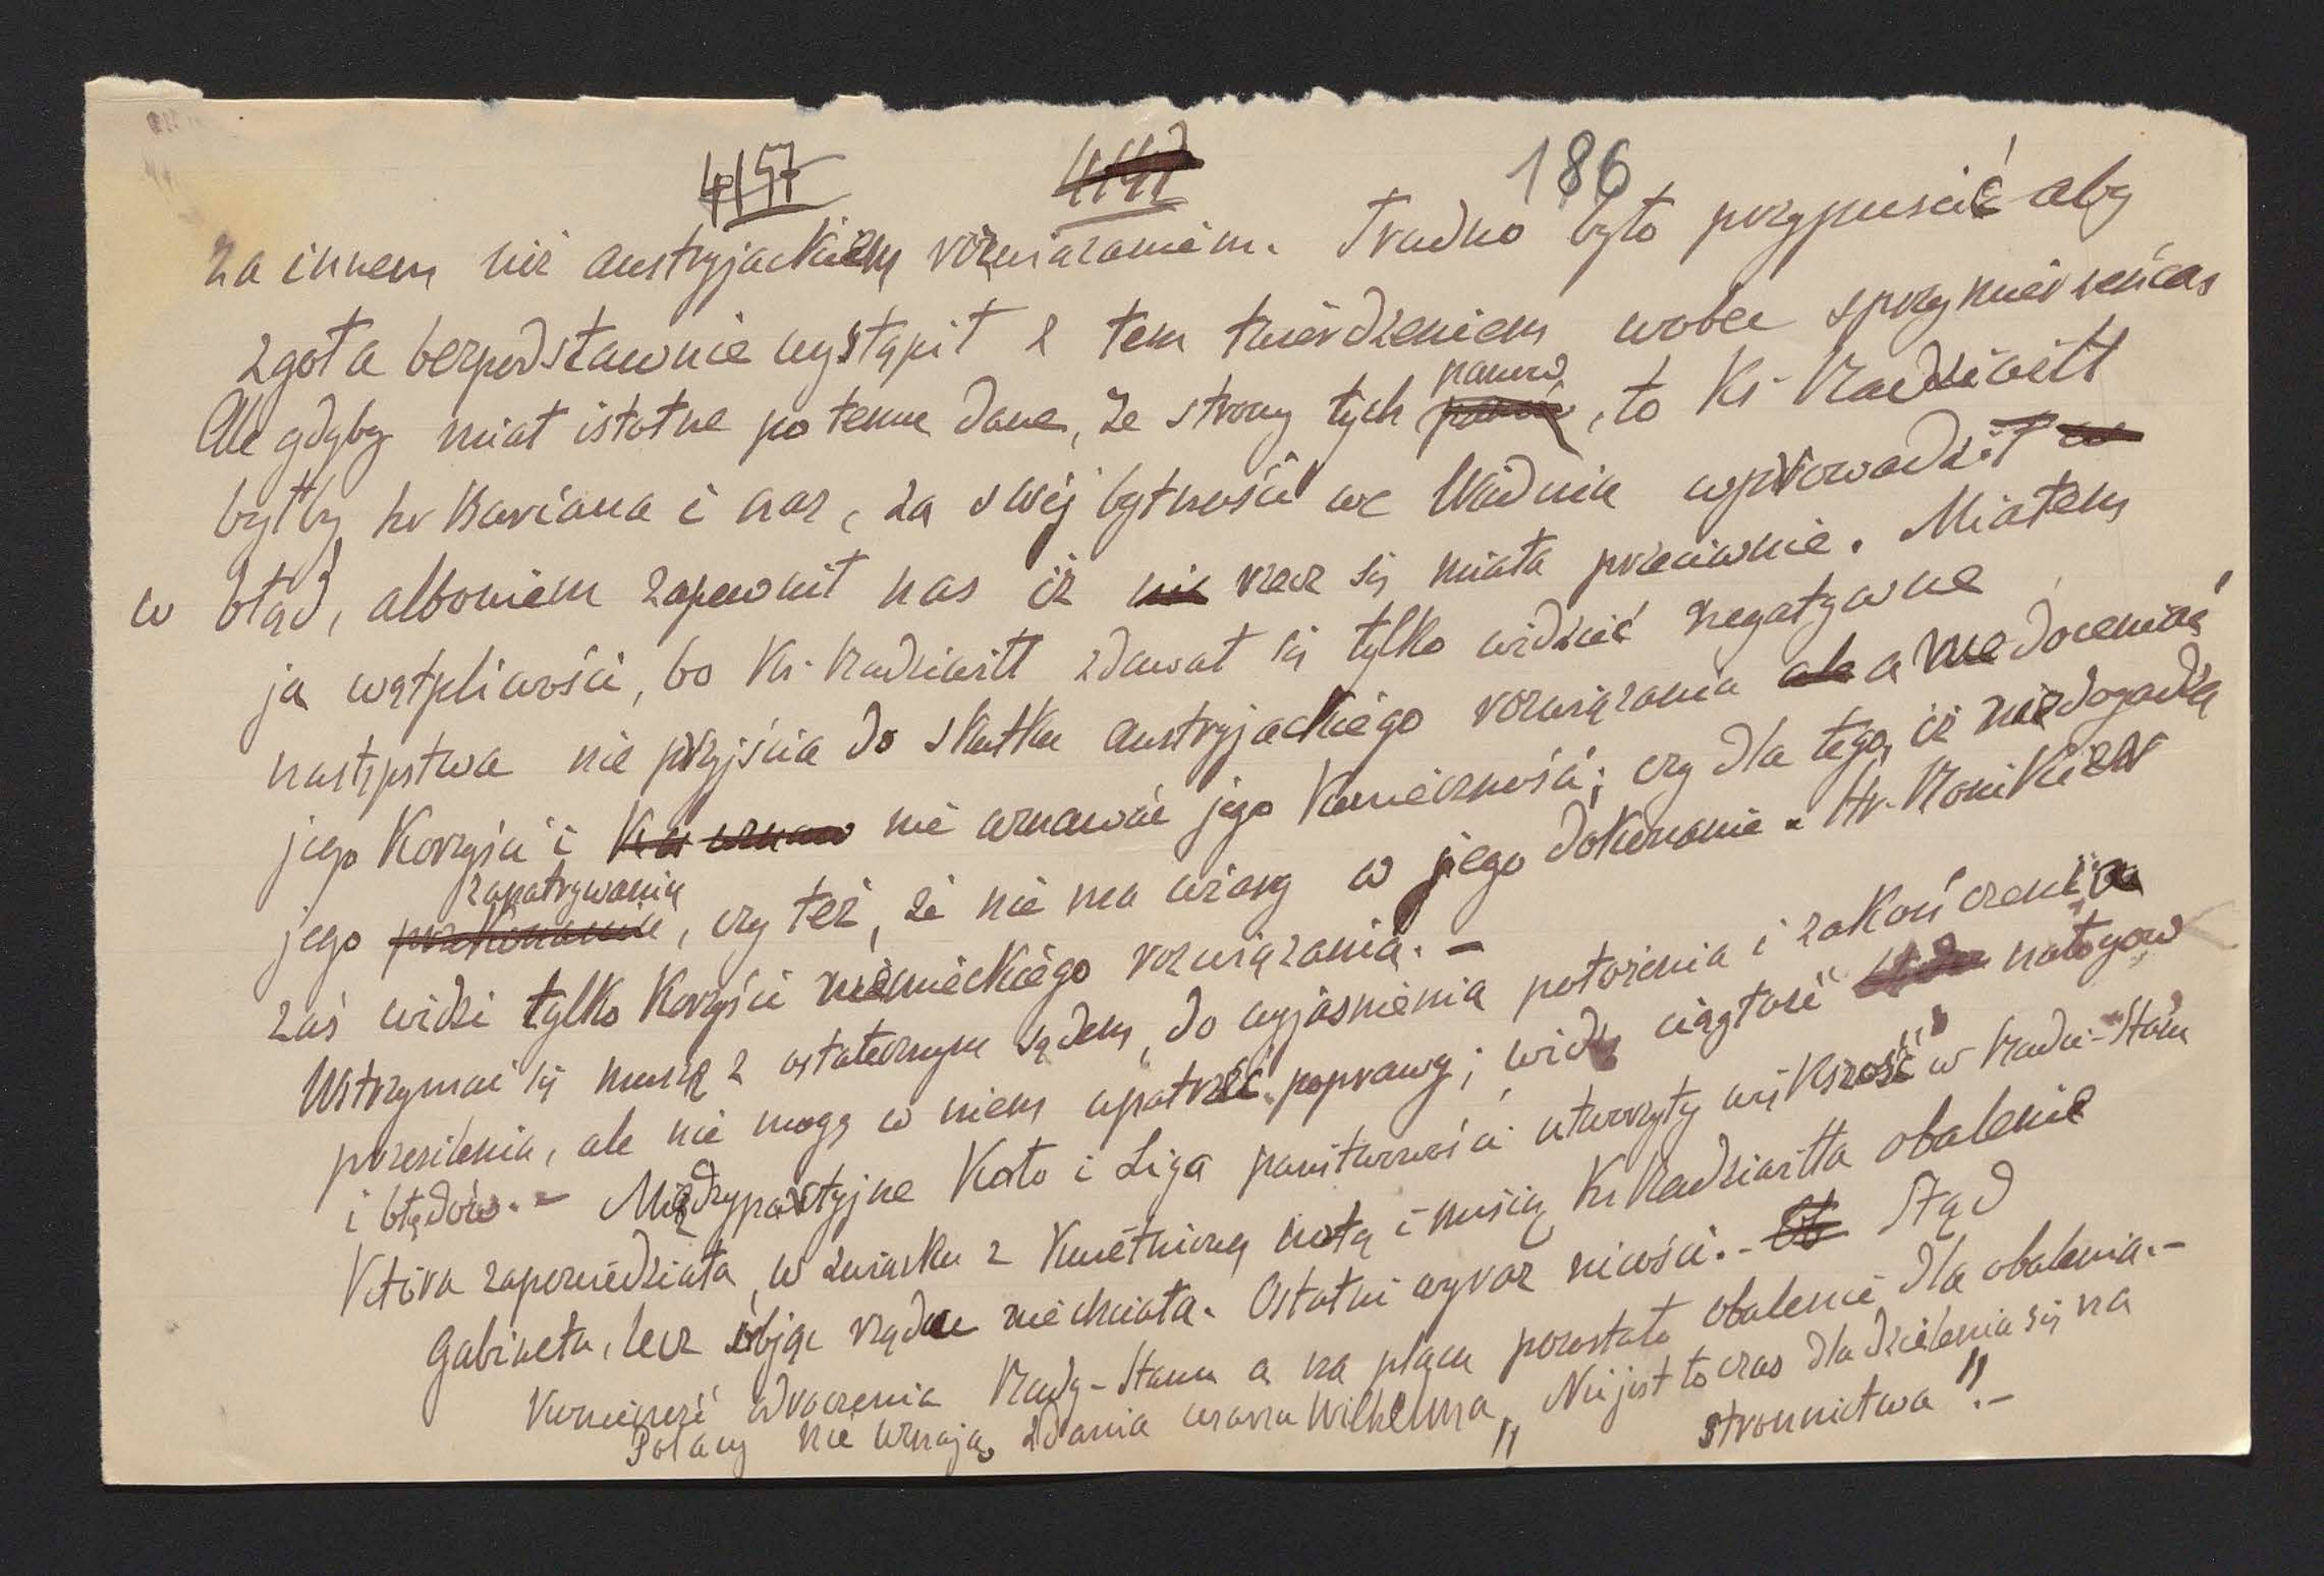 4157 4147 186
za innem niż austryjackiem rozwiązaniem. Trudno było przypuścić aby
zgoła bezpodstawnie wystąpił z tem twierdzeniem wobec sprzymierzeńca
Ale gdyby miał istotne po temu dane, ze strony tych panów, to Ks. Radziwiłł
byłby hr Buriana i nas, za swej bytności we Wiedniu wprowadził
w błąd, albowiem zapewnił nas iż rzecz się miała przeciwnie. Miałem
ja wątpliwości, bo Ks. Radziwiłł zdawał się tylko widzieć negatywne
następstwa nie przyjścia do skutku austryjackiego rozwiązania ale a nie doceniać
jego korzyści i nie uznawać jego konieczność; czy dla tego, iż nie dogadza
jego przekonaniu zapatrywaniu, czy też, że nie ma wiary w jego dokonanie. Hr. Ronikier
zaś widzi tylko korzyści niemieckiego rozwiązania. -
Wstrzymać się muszę z ostatecznym sądem, do wyjaśnienia położenia i zakończenia
przesilenia, ale nie mogę w niem upatrzeć poprawy; widzę ciągłość nałogów
i błędów. - Międzypartyjne Koło i Liga państwowości utworzyły większość w Radzie-Stanu
która zapowiedziała, w związku z Kucharzewskiego
Gabinetu, lecz objąć rządu nie chciała. Ostatni wyraz nicości. - Stąd
konieczność odroczenia Rady-Stanu a na placu pozostało obalenie dla obalenia. -
Polacy nie uznają zdania cesarza Wilhelma „Nie jest to czas dla dzielenia się na
stronnictwa". -